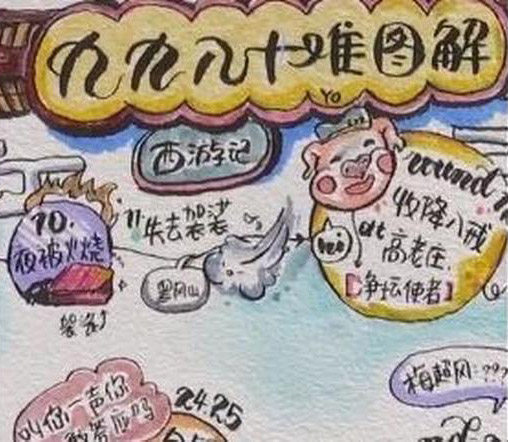 九九八十难图解
YO
西游记
round
10.
夜被火烧
11
失去袈裟
黑风山
袈裟
收降八戒
at
高老庄
【净坛使者】
叫你一声你
敢答应吗
24.25
梅超风:???